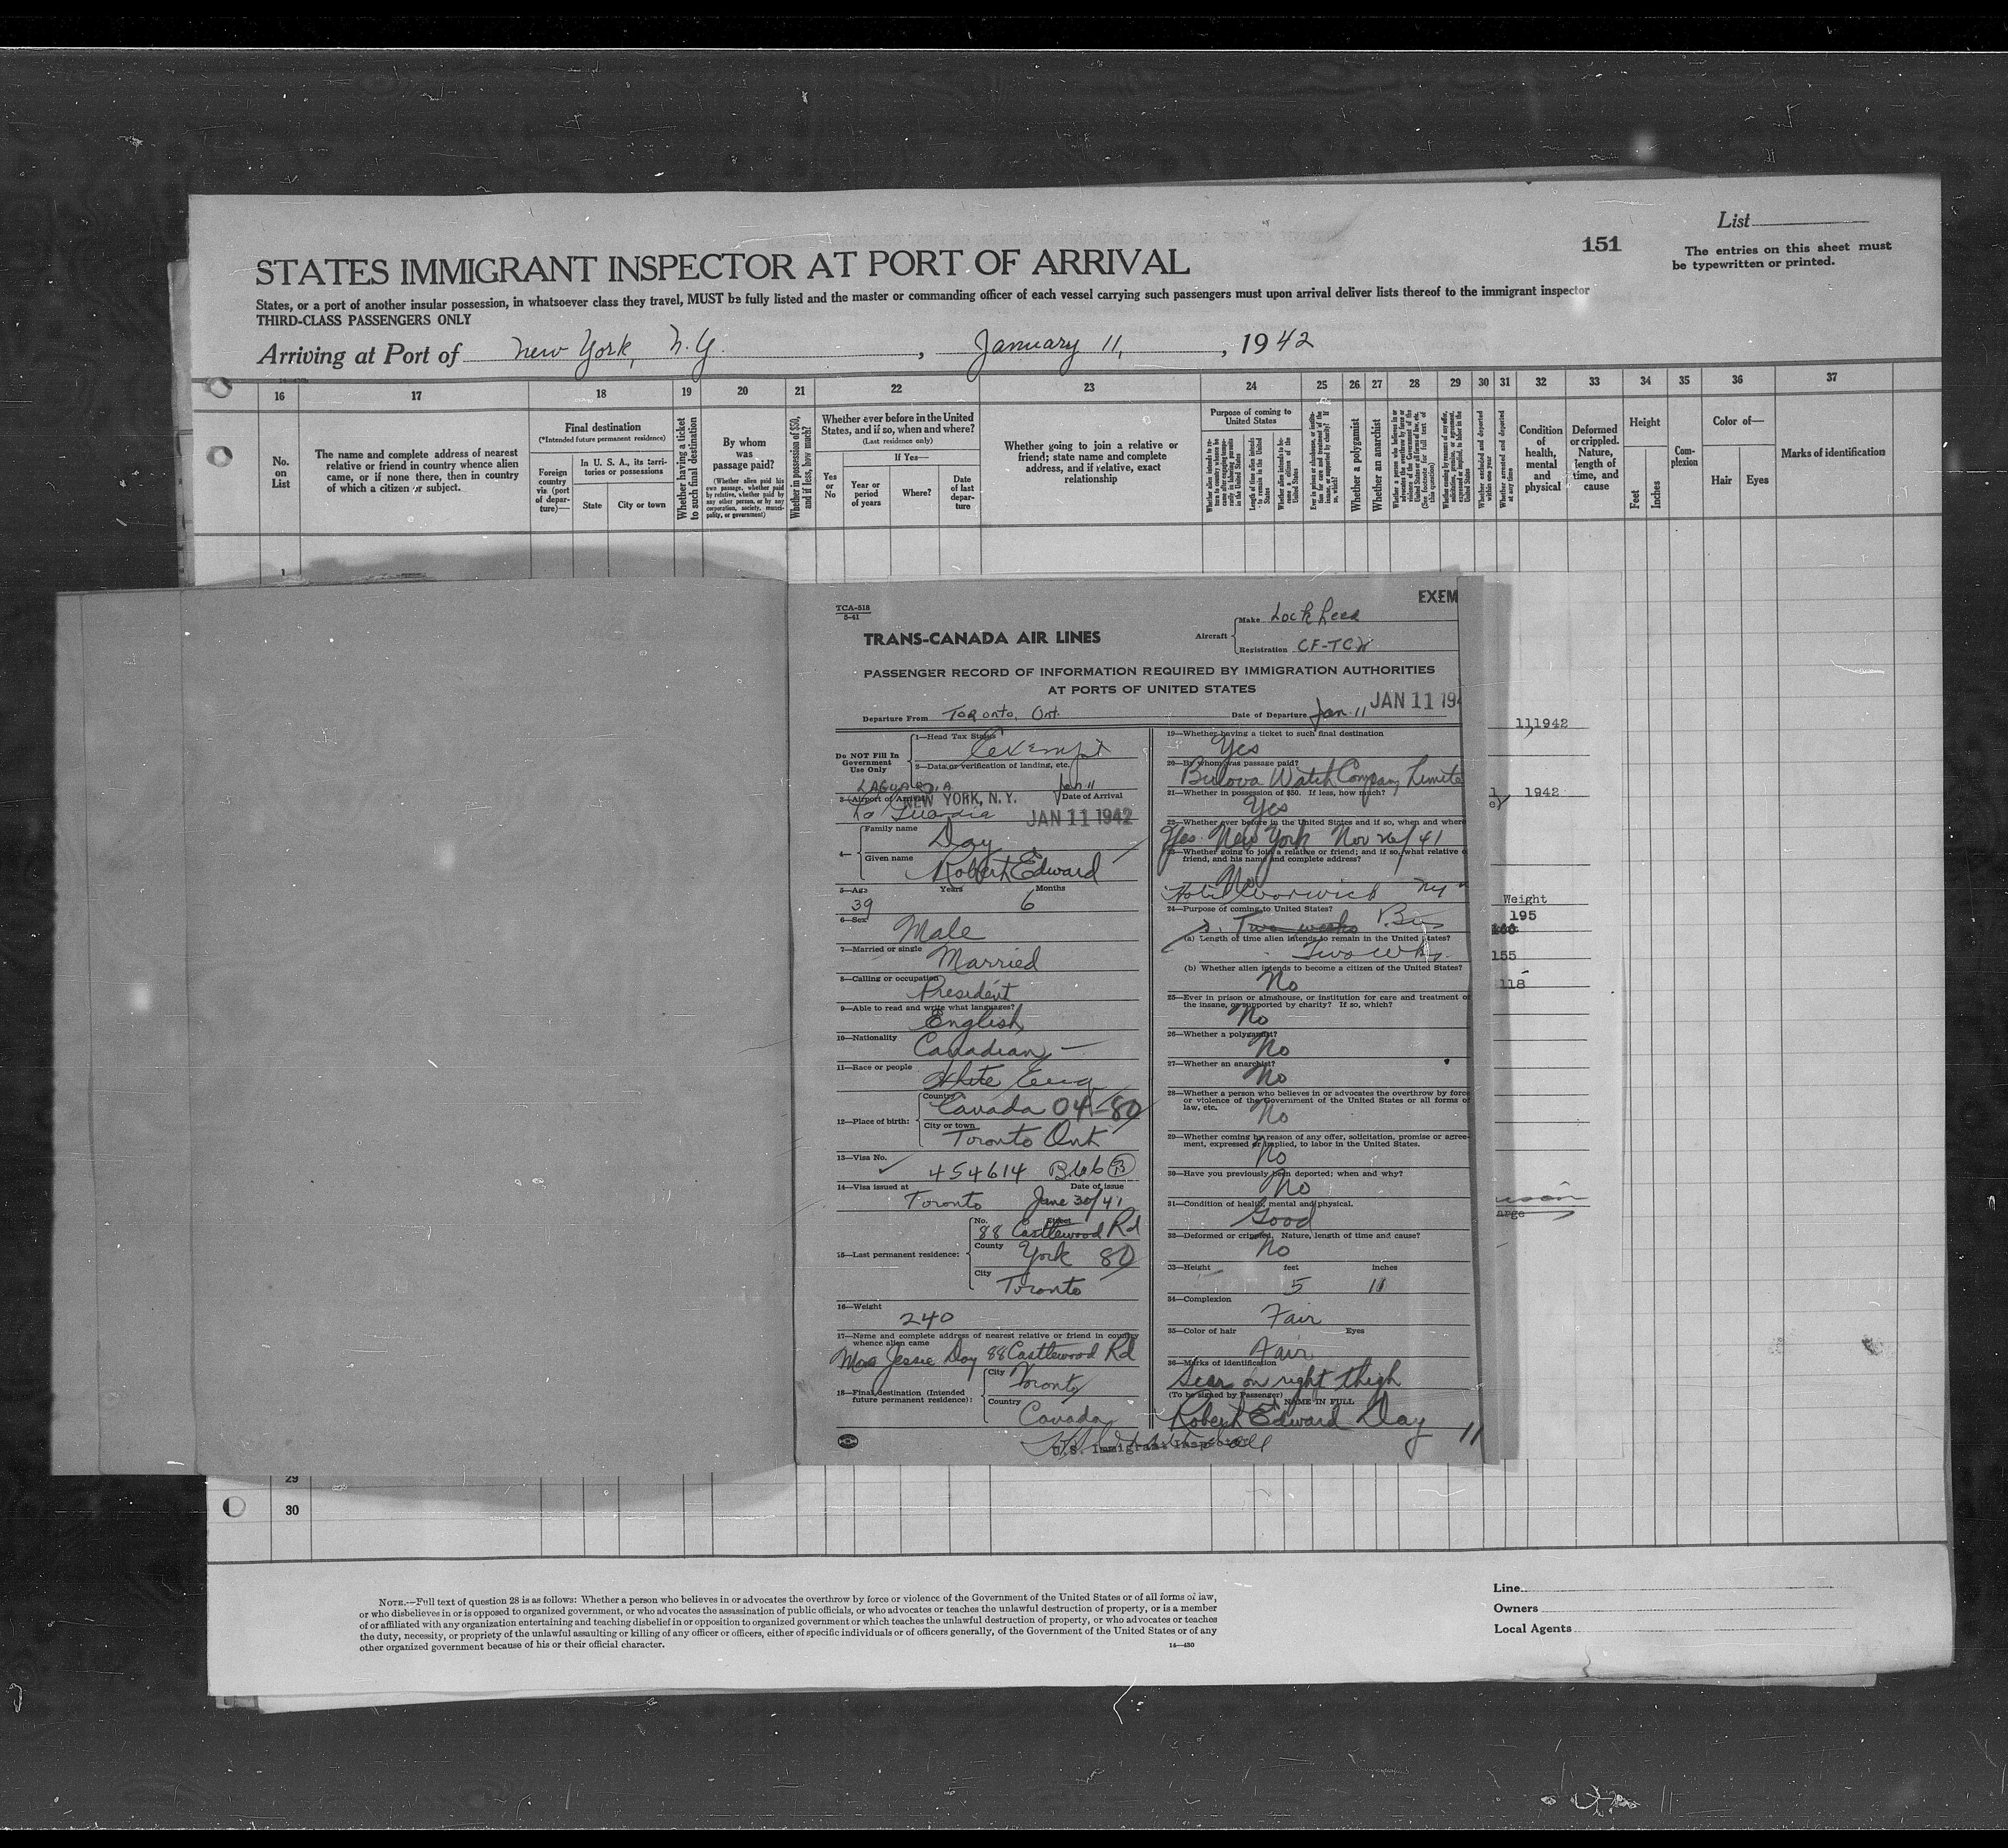 List
151
The entries on this sheet must
be typewritten or printed.
STATES IMMIGRANT INSPECTOR AT PORT OF ARRIVAL
States, or a port of another insular possession, in whatsoever class they travel, MUST be fully listed and the master or commanding officer of each vessel carrying such passengers must upon arrival deliver lists thereof to the immigrant inspector
THIRD-CLASS PASSENGERS ONLY
Arriving at Port of New York, N.Y. , January 11, , 1942
16 17 18 19 20 21 22 23 24 25 26 27 28 29 30 31 32 33 34 35 36 37
No.
on
List
The name and complete address of nearest
relative or friend in country whence alien
came, or if none there, then in country
of which a citizen or subject.
Final destination
(*Intended future permanent residence)
Foreign
country
via (port
of depar-
ture)—
In U. S. A., its terri-
tories or possessions
State
City or town
Whether having a ticket
to such final destination
By whom
was
passage paid?
(Whether alien paid his
own passage, whether paid
by relative, whether paid by
any other person, or by any
corporation, society, munici-
pality, or government)
Whether in possession of $50,
and if less, how much?
Whether ever before in the United
States, and if so, when and where?
(Last residence only)
Yes
or
No
If Yes—
Year or
period
of years
Where?
Date
of last
depar-
ture
Whether going to join a relative or
friend; state name and complete
address, and if relative, exact
relationship
Purpose of coming to
United States
Length of time alien intends
to remain in the United
States
Whether alien intends to be-
come a citizen of the
United States
Whether a polygamist
Whether an anarchist
Whether excluded and deported
within one year
Whether arrested and deported
at any time
Condition
of
health,
mental
and
physical
Deformed
or crippled.
Nature,
length of
time, and
cause
Height
Feet
Inches
Com-
plexion
Color of—
Hair
Eyes
Marks of identification
1
TCA-518
5-41
EXEM
TRANS-CANADA AIR LINES
Aircraft
Make Lockheed
Registration CF-TCW
PASSENGER RECORD OF INFORMATION REQUIRED BY IMMIGRATION AUTHORITIES
AT PORTS OF UNITED STATES
Departure From Toronto, Ont.
Date of Departure Jan. 11 JAN 11 194
Do NOT Fill In
Government
Use Only
1—Head Tax Status
exempt
2—Data or verification of landing, etc.
LAGUARDIA Jan 11
3—Airport of Arrival NEW YORK, N.Y. Date of Arrival
La Guardia JAN 11 1942
4—
Family name
Day
Given name
Robert Edward
5—Age Years Months
39 6
6—Sex
Male
7—Married or single
Married
8—Calling or occupation
President
9—Able to read and write what languages?
English
10—Nationality
Canadian
11—Race or people
White Eng
12—Place of birth:
Country
Canada 04-80
City or town
Toronto Ont
13—Visa No.
454614 B66 (3)
14—Visa issued at Date of issue
Toronto June 30/41
15—Last permanent residence:
No. Street
88 Castlewood Rd
County
York 80
City
Toronto
16—Weight
240
17—Name and complete address of nearest relative or friend in country
whence alien came
Mrs Jessie Day 88 Castlewood Rd
18—Final destination (Intended
future permanent residence):
City
Toronto
Country
Canada
U.S. Immigrant Inspector
19—Whether having a ticket to such final destination
Yes
20—By whom was passage paid?
Bulova Watch Company Limite
21—Whether in possession of $50. If less, how much?
Yes
22—Whether ever before in the United States and if so, when and where
Yes. New York Nov 26/41
23—Whether going to join a relative or friend; and if so, what relative o
friend, and his name and complete address?
No
Hotel Warwick NY
24—Purpose of coming to United States?
Two weeks Bus
(a) Length of time alien intends to remain in the United States?
Two wks.
(b) Whether alien intends to become a citizen of the United States?
No
25—Ever in prison or almshouse, or institution for care and treatment of
the insane, or supported by charity? If so, which?
No
26—Whether a polygamist?
No
27—Whether an anarchist?
No
28—Whether a person who believes in or advocates the overthrow by force
or violence of the Government of the United States or all forms of
law, etc.
No
29—Whether coming by reason of any offer, solicitation, promise or agree-
ment, expressed or implied, to labor in the United States.
No
30—Have you previously been deported; when and why?
No
31—Condition of health, mental and physical.
Good
32—Deformed or crippled. Nature, length of time and cause?
No
33—Height feet inches
5 11
34—Complexion
Fair
35—Color of hair Eyes
Fair
36—Marks of identification
Scar on right thigh
(To be signed by Passenger) NAME IN FULL
Robert Edward Day
11
11,1942
1942
Weight
195
155
118
arge
29
30
NOTE.—Full text of question 28 is as follows: Whether a person who believes in or advocates the overthrow by force or violence of the Government of the United States or of all forms of law,
or who disbelieves in or is opposed to organized government, or who advocates the assassination of public officials, or who advocates or teaches the unlawful destruction of property, or is a member
of or affiliated with any organization entertaining and teaching disbelief in or opposition to organized government or which teaches the unlawful destruction of property, or who advocates or teaches
the duty, necessity, or propriety of the unlawful assaulting or killing of any officer or officers, either of specific individuals or of officers generally, of the Government of the United States or of any
other organized government because of his or their official character.
14—430
Line
Owners
Local Agents